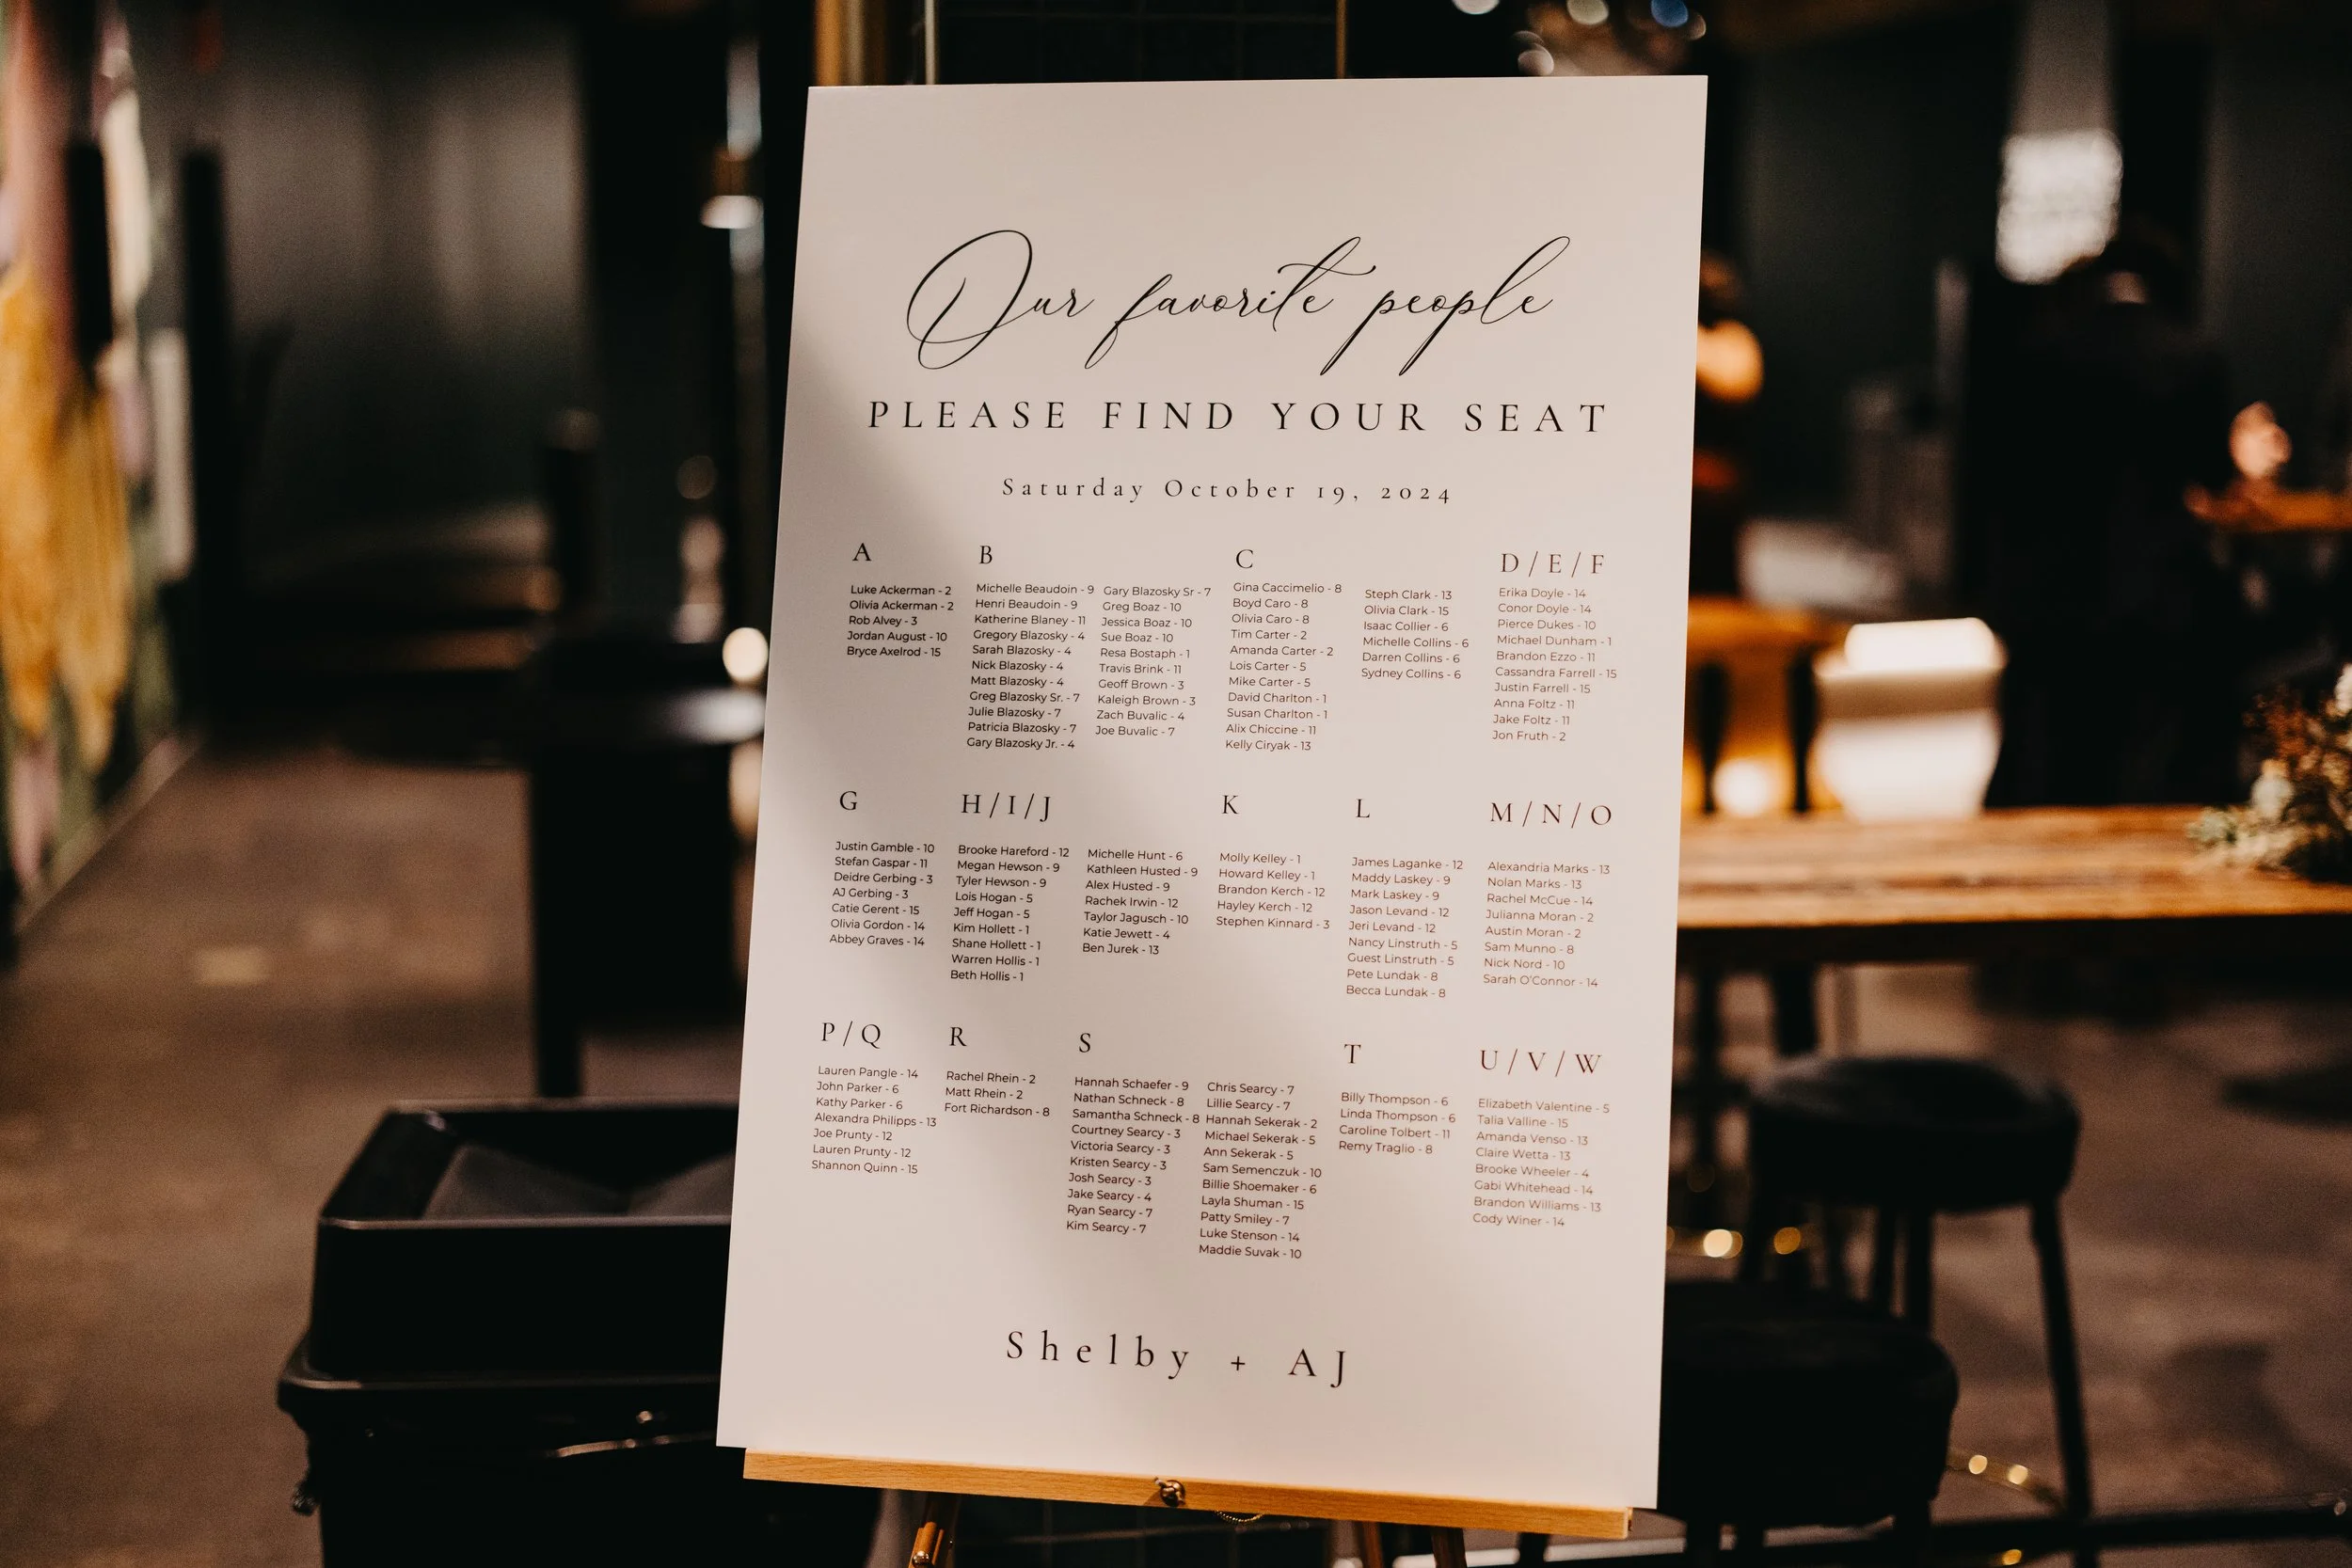 Our favorite people
PLEASE FIND YOUR SEAT
Saturday October 19, 2024
A
Luke Ackerman - 2
Olivia Ackerman - 2
Rob Alvey - 3
Jordan August - 10
Bryce Axelrod - 15
B
Michelle Beaudoin - 9
Henri Beaudoin - 9
Katherine Blaney - 11
Gregory Blazosky - 4
Sarah Blazosky - 4
Nick Blazosky - 4
Matt Blazosky - 4
Greg Blazosky Sr. - 7
Julie Blazosky - 7
Patricia Blazosky - 7
Gary Blazosky Jr. - 4
Gary Blazosky Sr - 7
Greg Boaz - 10
Jessica Boaz - 10
Sue Boaz - 10
Resa Bostaph - 1
Travis Brink - 11
Geoff Brown - 3
Kaleigh Brown - 3
Zach Buvalic - 4
Joe Buvalic - 7
C
Gina Caccimelio - 8
Boyd Caro - 8
Olivia Caro - 8
Tim Carter - 2
Amanda Carter - 2
Lois Carter - 5
Mike Carter - 5
David Charlton - 1
Susan Charlton - 1
Alix Chiccine - 11
Kelly Ciryak - 13
Steph Clark - 13
Olivia Clark - 15
Isaac Collier - 6
Michelle Collins - 6
Darren Collins - 6
Sydney Collins - 6
D/E/F
Erika Doyle - 14
Conor Doyle - 14
Pierce Dukes - 10
Michael Dunham - 1
Brandon Ezzo - 11
Cassandra Farrell - 15
Justin Farrell - 15
Anna Foltz - 11
Jake Foltz - 11
Jon Fruth - 2
G
Justin Gamble - 10
Stefan Gaspar - 11
Deidre Gerbing - 3
AJ Gerbing - 3
Catie Gerent - 15
Olivia Gordon - 14
Abbey Graves - 14
H/I/J
Brooke Hareford - 12
Megan Hewson - 9
Tyler Hewson - 9
Lois Hogan - 5
Jeff Hogan - 5
Kim Hollett - 1
Shane Hollett - 1
Warren Hollis - 1
Beth Hollis - 1
Michelle Hunt - 6
Kathleen Husted - 9
Alex Husted - 9
Rachek Irwin - 12
Taylor Jagusch - 10
Katie Jewett - 4
Ben Jurek - 13
K
Molly Kelley - 1
Howard Kelley - 1
Brandon Kerch - 12
Hayley Kerch - 12
Stephen Kinnard - 3
L
James Laganke - 12
Maddy Laskey - 9
Mark Laskey - 9
Jason Levand - 12
Jeri Levand - 12
Nancy Linstruth - 5
Guest Linstruth - 5
Pete Lundak - 8
Becca Lundak - 8
M/N/O
Alexandria Marks - 13
Nolan Marks - 13
Rachel McCue - 14
Julianna Moran - 2
Austin Moran - 2
Sam Munno - 8
Nick Nord - 10
Sarah O'Connor - 14
P/Q
Lauren Pangle - 14
John Parker - 6
Kathy Parker - 6
Alexandra Philipps - 13
Joe Prunty - 12
Lauren Prunty - 12
Shannon Quinn - 15
R
Rachel Rhein - 2
Matt Rhein - 2
Fort Richardson - 8
S
Hannah Schaefer - 9
Nathan Schneck - 8
Samantha Schneck - 8
Courtney Searcy - 3
Victoria Searcy - 3
Kristen Searcy - 3
Josh Searcy - 3
Jake Searcy - 4
Ryan Searcy - 7
Kim Searcy - 7
Chris Searcy - 7
Lillie Searcy - 7
Hannah Sekerak - 2
Michael Sekerak - 5
Ann Sekerak - 5
Sam Semenczuk - 10
Billie Shoemaker - 6
Layla Shuman - 15
Patty Smiley - 7
Luke Stenson - 14
Maddie Suvak - 10
T
Billy Thompson - 6
Linda Thompson - 6
Caroline Tolbert - 11
Remy Traglio - 8
U/V/W
Elizabeth Valentine - 5
Talia Valline - 15
Amanda Venso - 13
Claire Wetta - 13
Brooke Wheeler - 4
Gabi Whitehead - 14
Brandon Williams - 13
Cody Winer - 14
Shelby + AJ